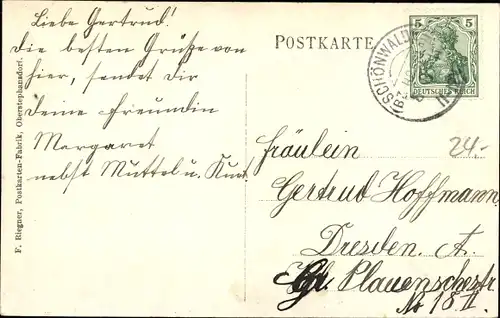 Liebe Gertrud!
Die besten Grüße von
hier, sendet Dir
Deine Freundin
Margaret
nebst Muttel u. Kurt.
POSTKARTE
5 5
DEUTSCHES REICH
SCHÖNWALD
24.-
Fräulein
Gertrud Hoffmann,
Dresden. A.
Plauenschestr.
No 18 II.
F. Riegner, Postkarten-Fabrik, Oberstephansdorf.